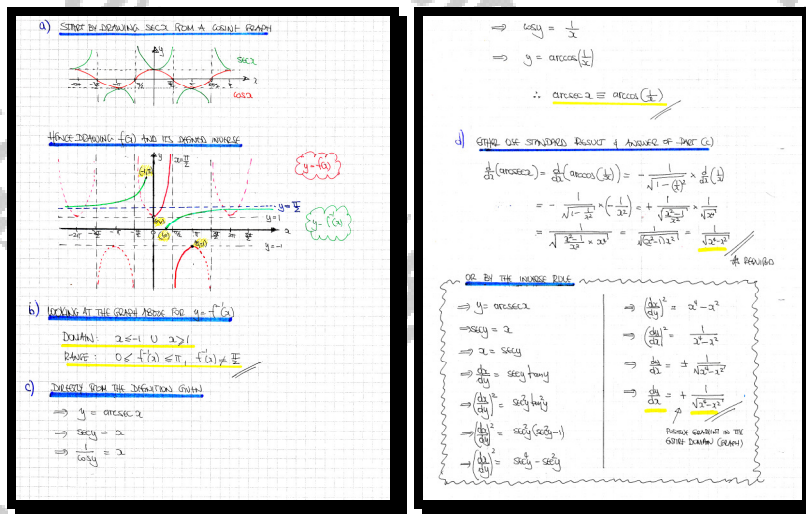 a) START BY DRAWING SECX FROM A COSINE GRAPH
y
secx
cosx
x
HENCE DRAWING f(x) AND ITS DEFINED INVERSE
y
x=π/2
y=f(x)
(-1,π)
y=π/2
y=1
y=f⁻¹(x)
x
y=-1
b) LOOKING AT THE GRAPH ABOVE FOR y=f⁻¹(x)
DOMAIN: x≤-1 ∪ x≥1
RANGE: 0≤f⁻¹(x)≤π, f⁻¹(x)≠π/2
c) DIRECTLY FROM THE DEFINITION GIVEN
⇒ y = arcsec x
⇒ secy = x
⇒ 1/cosy = x
⇒ cosy = 1/x
⇒ y = arccos(1/x)
∴ arcsec x ≡ arccos(1/x)
d) EITHER USE STANDARD RESULT & ANSWER OF PART (c)
d/dx(arcsecx) = d/dx(arccos(1/x)) = -1/√(1-(1/x)²) × d/dx(1/x)
= -1/√(1-1/x²) × (-1/x²) = +1/√((x²-1)/x²) × 1/√x⁴
= 1/√((x²-1)/x² × x⁴) = 1/√((x²-1)x²) = 1/√(x⁴-x²)
AS REQUIRED
OR BY THE INVERSE RULE
⇒ y = arcsecx
⇒ secy = x
⇒ x = secy
⇒ dx/dy = secy tany
⇒ (dx/dy)² = sec²y tan²y
⇒ (dx/dy)² = sec²y(sec²y-1)
⇒ (dx/dy)² = sec⁴y - sec²y
⇒ (dx/dy)² = x⁴-x²
⇒ (dy/dx)² = 1/(x⁴-x²)
⇒ dy/dx = ± 1/√(x⁴-x²)
⇒ dy/dx = + 1/√(x⁴-x²)
POSITIVE GRADIENT IN THE
ENTIRE DOMAIN (GRAPH)